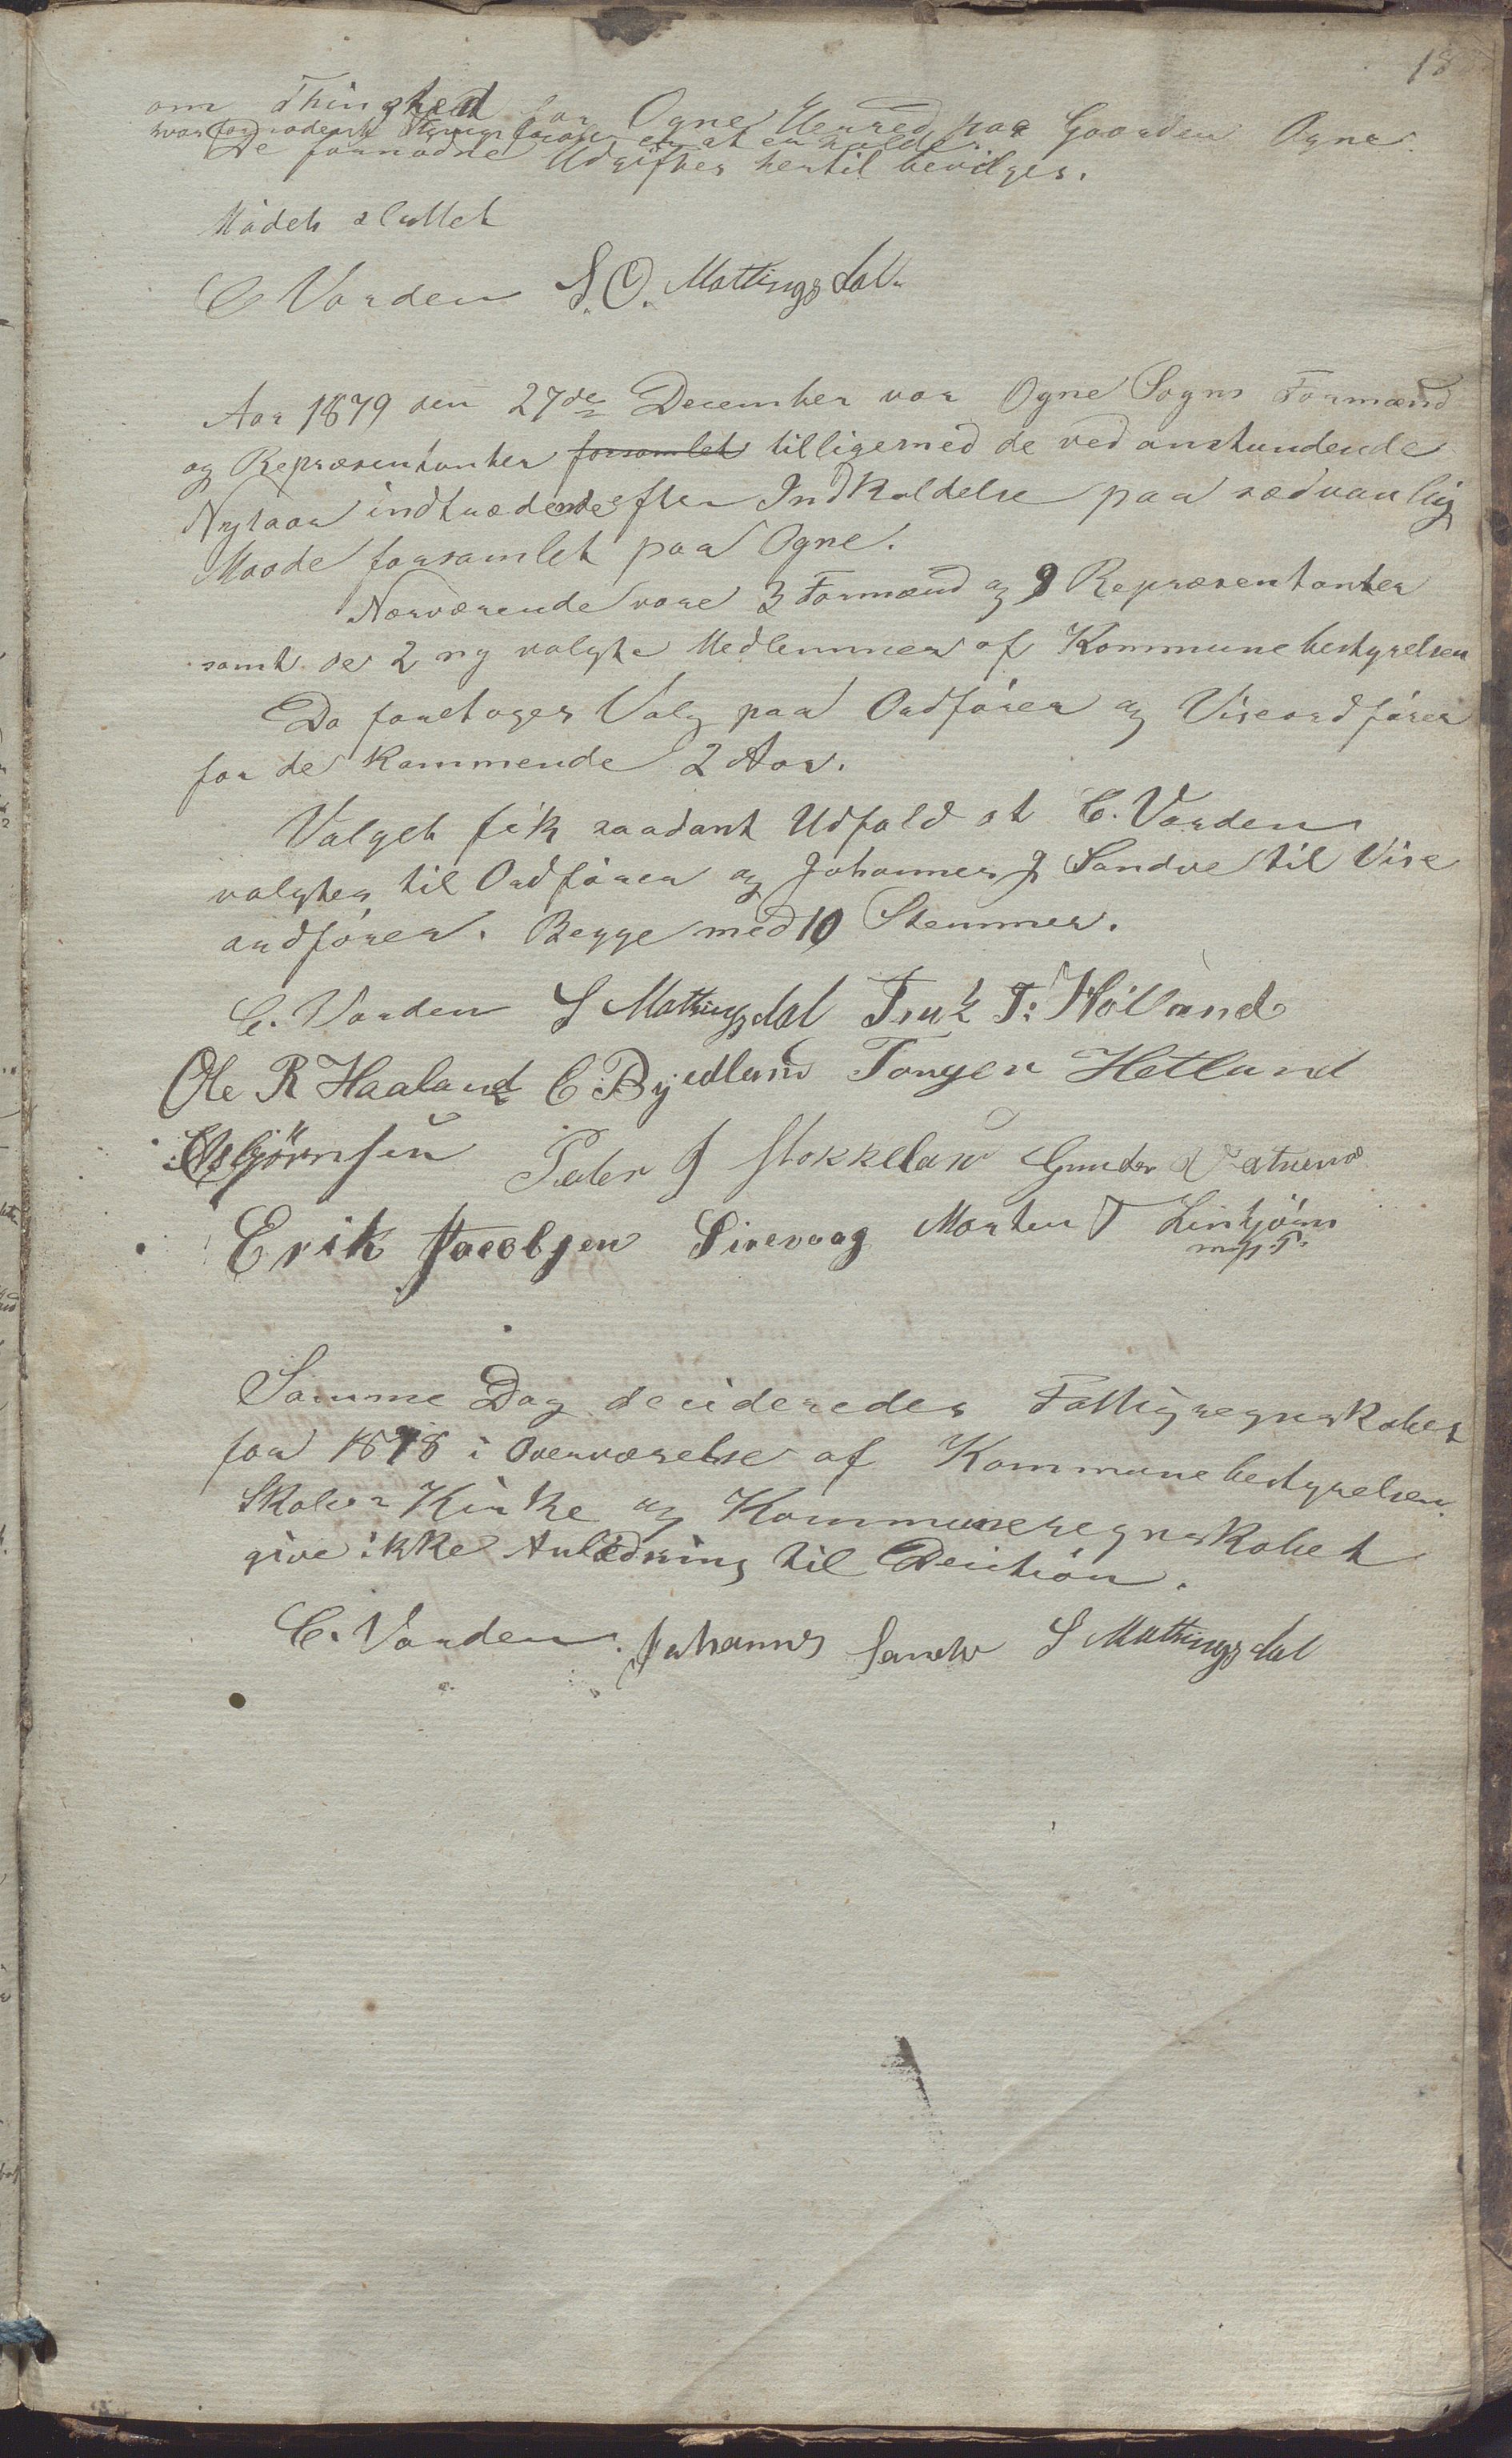 18
om Thingsted for Ogne Herred paa Gaarden Ogne
hvor fornødent er at erholde.
De fornødne Udgifter hertil bevilges.
Mødet sluttet
C Varden S. O. Mattingsdal
Aar 1879 den 27de December var Ogne Sogns Formænd
og Repræsentanter forsamlet tilligemed de ved anstundende
Nytaar indtrædende efter Indkaldelse paa sædvanlig
Maade forsamlet paa Ogne.
Nærværende vare 3 Formænd og 9 Repræsentanter
samt de 2 ny valgte Medlemmer af Kommunebestyrelsen
Da foretoges Valg paa Ordfører og Viseordfører
for de kommende 2 Aar.
Valget fik saadant Udfald at C. Varden
valgtes til Ordfører og Johannes J Sandve til Vise
ordfører. Begge med 10 Stemmer.
C. Varden S Mattingsdal T. Hölland
Ole R Haaland C Bjedland Torger Hetland
Asbjörnsen Peder J Stokkelan Gunder
Erik Jacobsen Sirevaag Morten T Linkjörn
m.f.P.
Samme Dag decideredes Fattigregnskabet
for 1878 i Overværelse af Kommunebestyrelsen.
Skole- Kirke og Kommuneregnskabet
give ikke Anledning til Decision.
C. Varden. Johannes Sandve S Mattingsdal